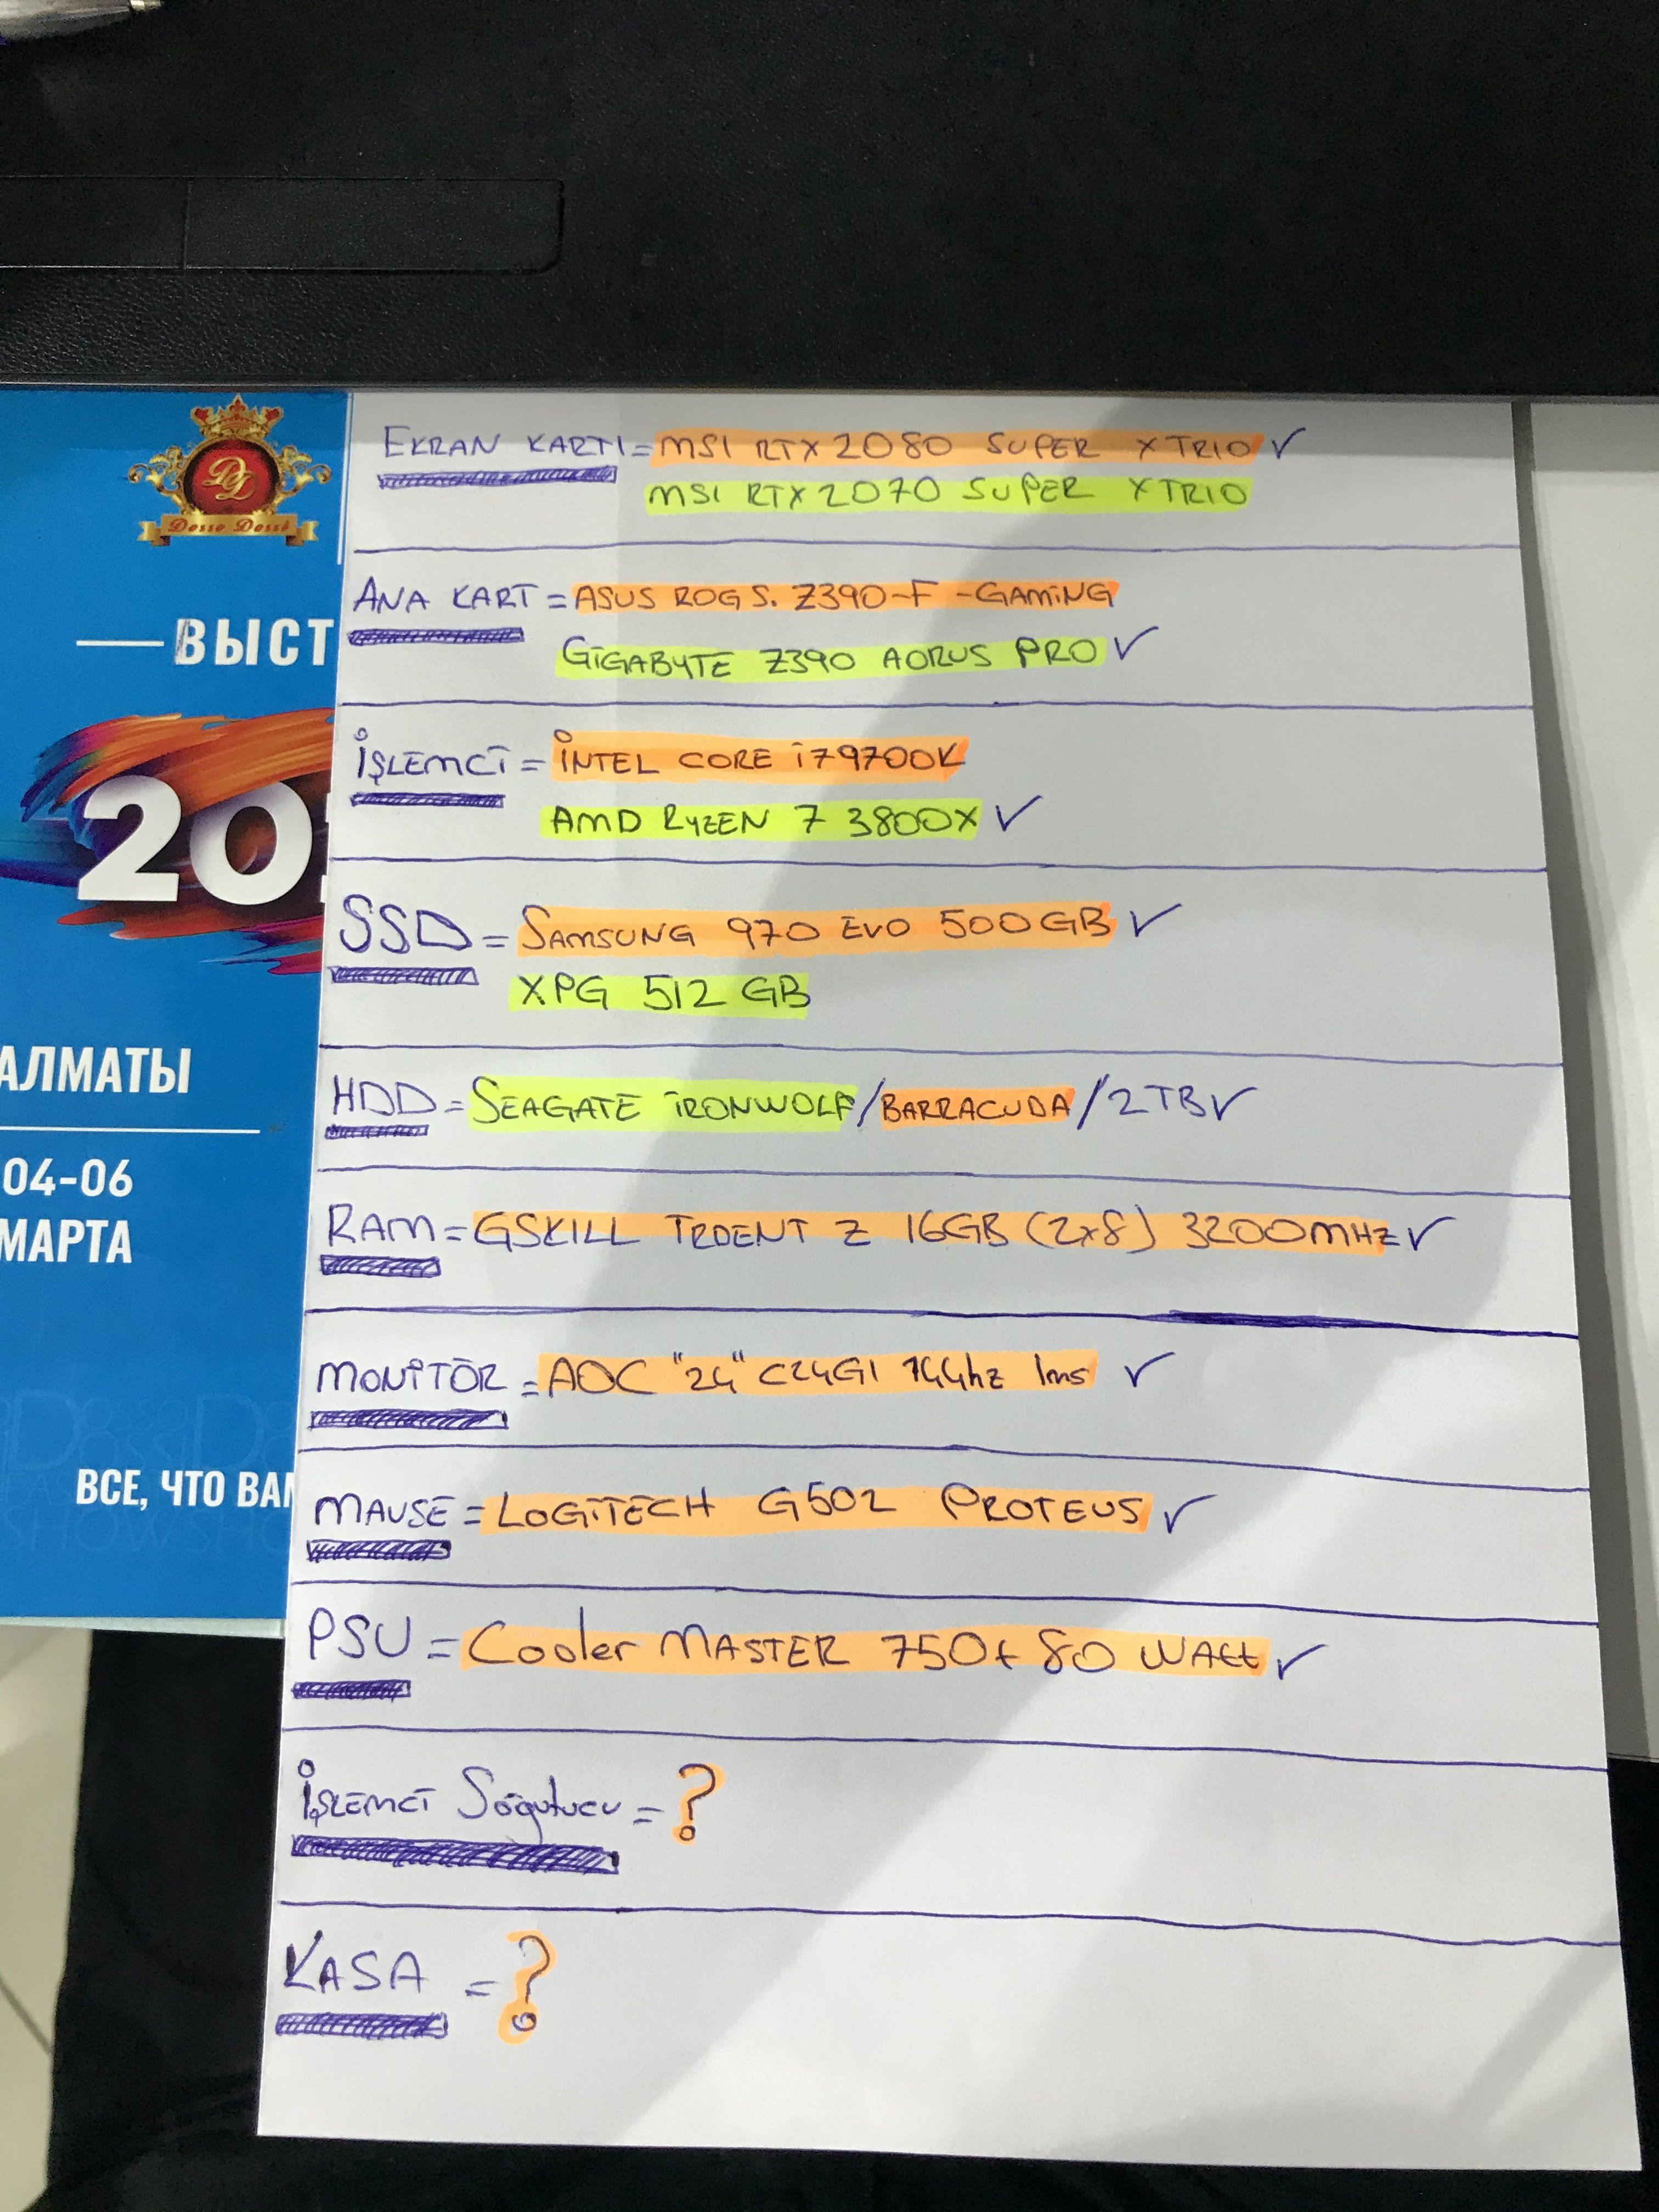 EKRAN KARTI = MSI RTX 2080 SUPER X TRIO ✓
MSI RTX 2070 SUPER X TRIO
ANA KART = ASUS ROG S. Z390-F-GAMiNG
GiGABYTE Z390 AORUS PRO ✓
İŞLEMCİ = İNTEL CORE i7 9700K
AMD RYZEN 7 3800X ✓
SSD = SAMSUNG 970 EVO 500GB ✓
XPG 512 GB
HDD = SEAGATE iRONWOLF/BARRACUDA/2TB ✓
RAM = GSKILL TRDENT Z 16GB (2x8) 3200MHZ ✓
MONİTÖR = AOC "24" C24G1 144hz 1ms ✓
MAUSE = LOGİTECH G502 PROTEUS ✓
PSU = Cooler MASTER 750+ 80 WAtt ✓
İŞLEMCİ Soğutucu = ?
KASA = ?
Dosso Dossi
ВЫСТ
20
АЛМАТЫ
04-06
МАРТА
ВСЕ, ЧТО ВАМ